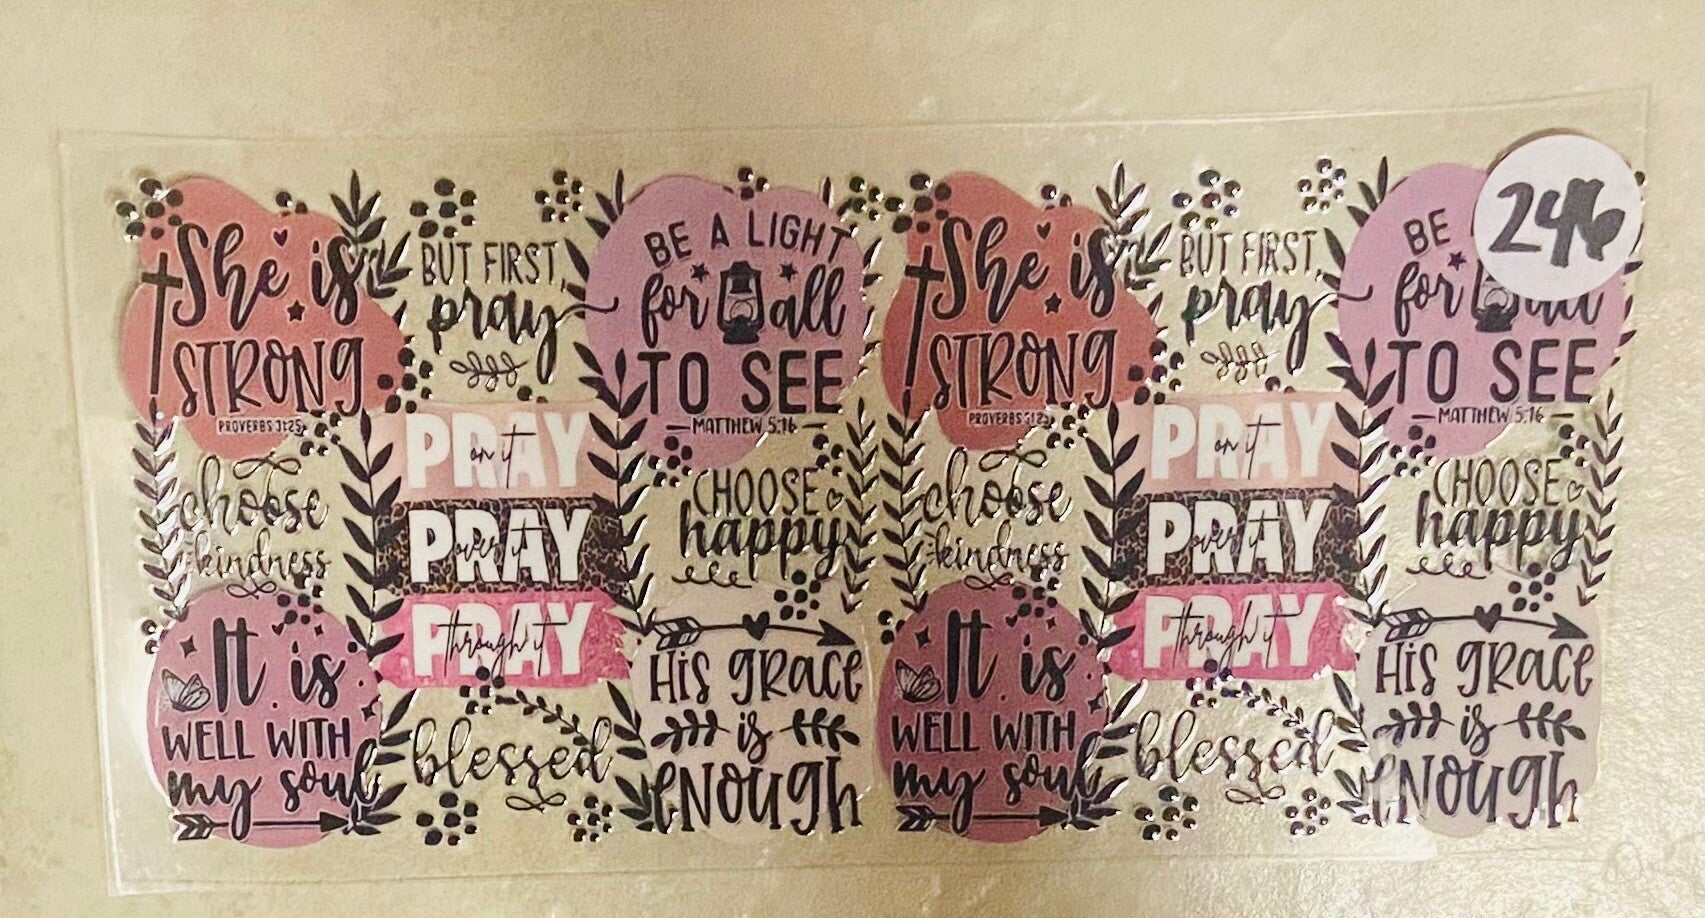 She is
STRONG
PROVERBS 31:25
BUT FIRST,
pray
BE A LIGHT
for all
TO SEE
MATTHEW 5:16
choose
kindness
PRAY
on it
PRAY
over it
PRAY
through it
CHOOSE
happy
It is
WELL WITH
my soul
blessed
His GRACE
is
ENOUGH
She is
STRONG
PROVERBS 31:25
BUT FIRST,
pray
BE
for all
TO SEE
MATTHEW 5:16
246
choose
kindness
PRAY
on it
PRAY
over it
PRAY
through it
CHOOSE
happy
It is
WELL WITH
my soul
blessed
His GRACE
is
ENOUGH